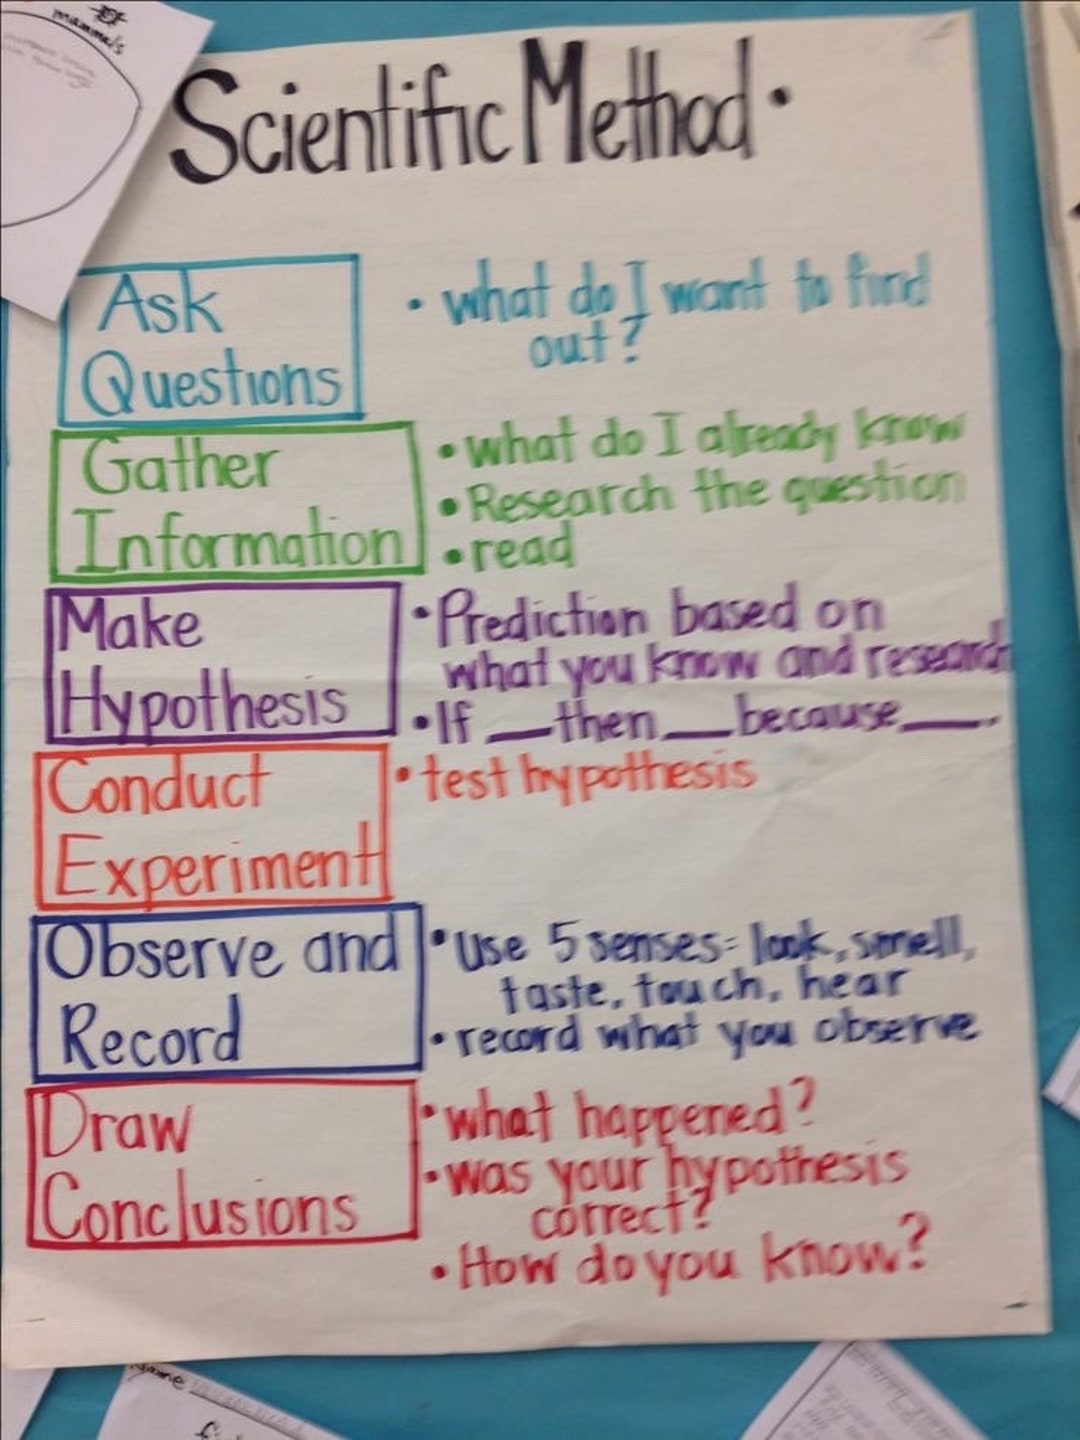 mammals
Scientific Method
Ask
Questions
• what do I want to find
out?
Gather
Information
• what do I already know
• Research the question
• read
Make
Hypothesis
• Prediction based on
what you know and research
• If __ then __ because __.
Conduct
Experiment
• test hypothesis
Observe and
Record
• use 5 senses: look, smell,
taste, touch, hear
• record what you observe
Draw
Conclusions
• what happened?
• was your hypothesis
correct?
• How do you know?
Name